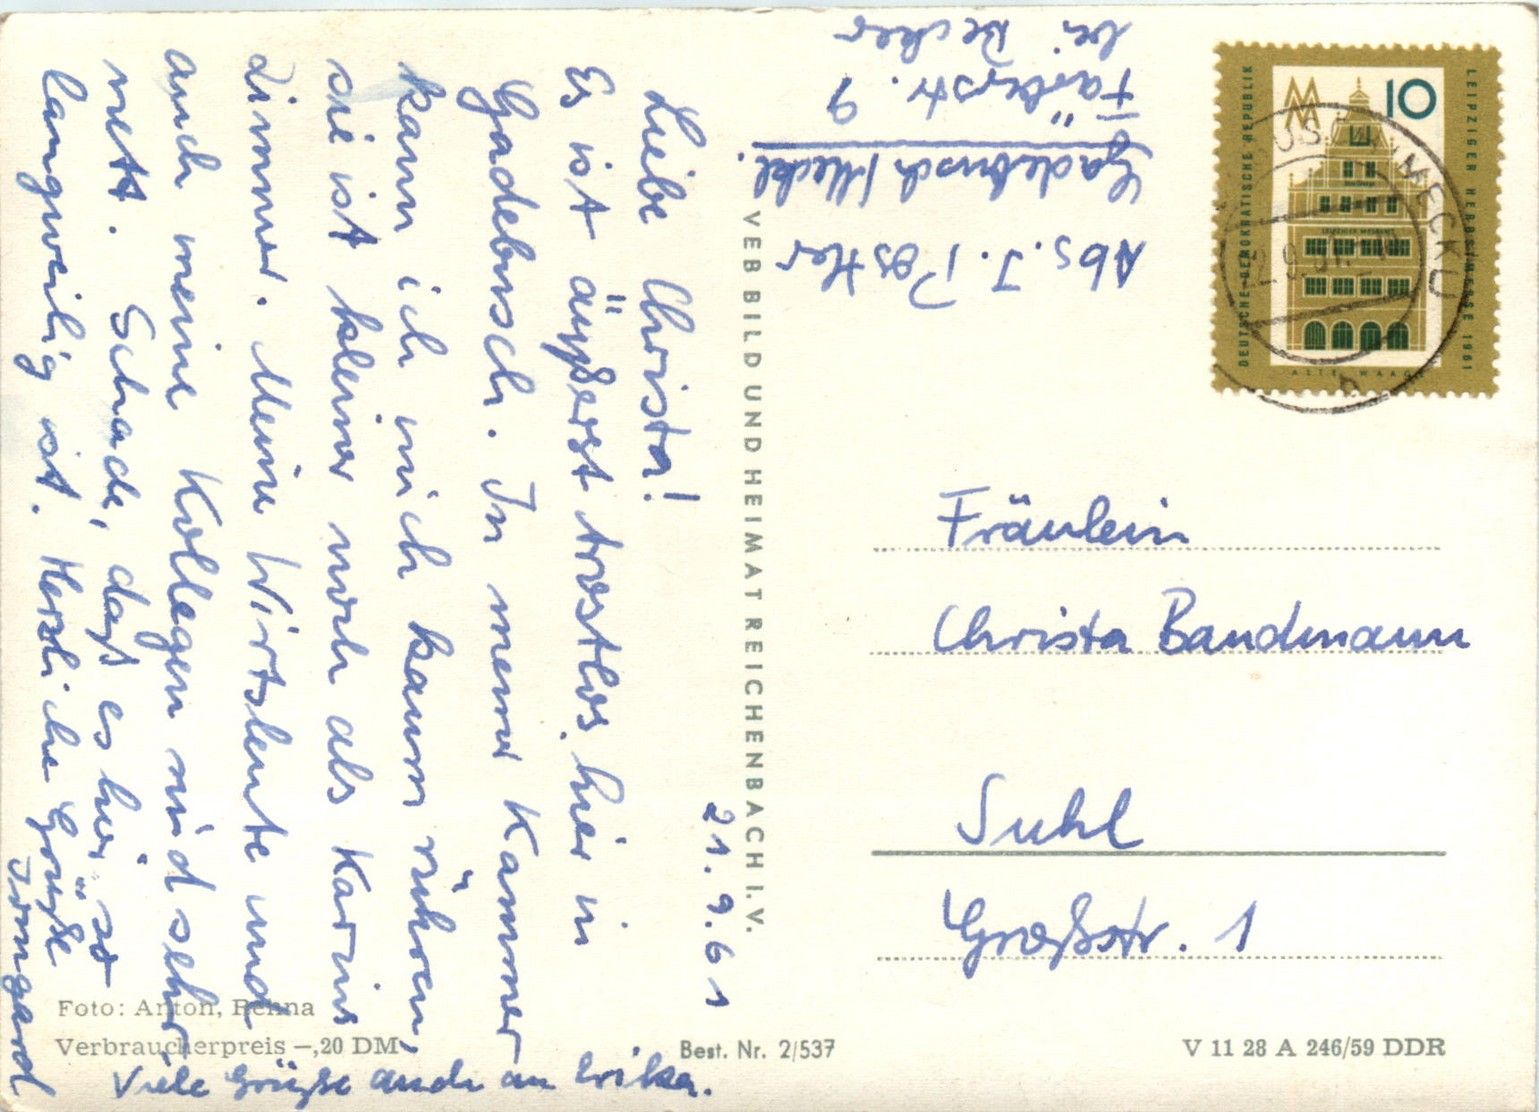 21.9.61
Liebe Christa!
Es ist äußerst trostlos hier in
Gadebusch. In meiner Kammer
kann ich mich kaum rühren,
sie ist kleiner noch als Karins
Zimmer. Meine Wirtsleute und
auch meine Kollegen sind sehr
nett. Schade, daß es hier so
langweilig ist. Herzliche Grüße
Irmgard
Viele Grüße auch an Erika.
Abs. I. Postler
Gadebusch/Meckl.
Färberstr. 9
bei Becker
VEB BILD UND HEIMAT REICHENBACH I.V.
DEUTSCHE DEMOKRATISCHE REPUBLIK
LEIPZIGER HERBSTMESSE 1961
MM
10
ALTE WAAGE
Fräulein
Christa Bandmann
Suhl
Großstr. 1
Foto: Anton, Rehna
Verbraucherpreis —,20 DM
Best. Nr. 2/537
V 11 28 A 246/59 DDR